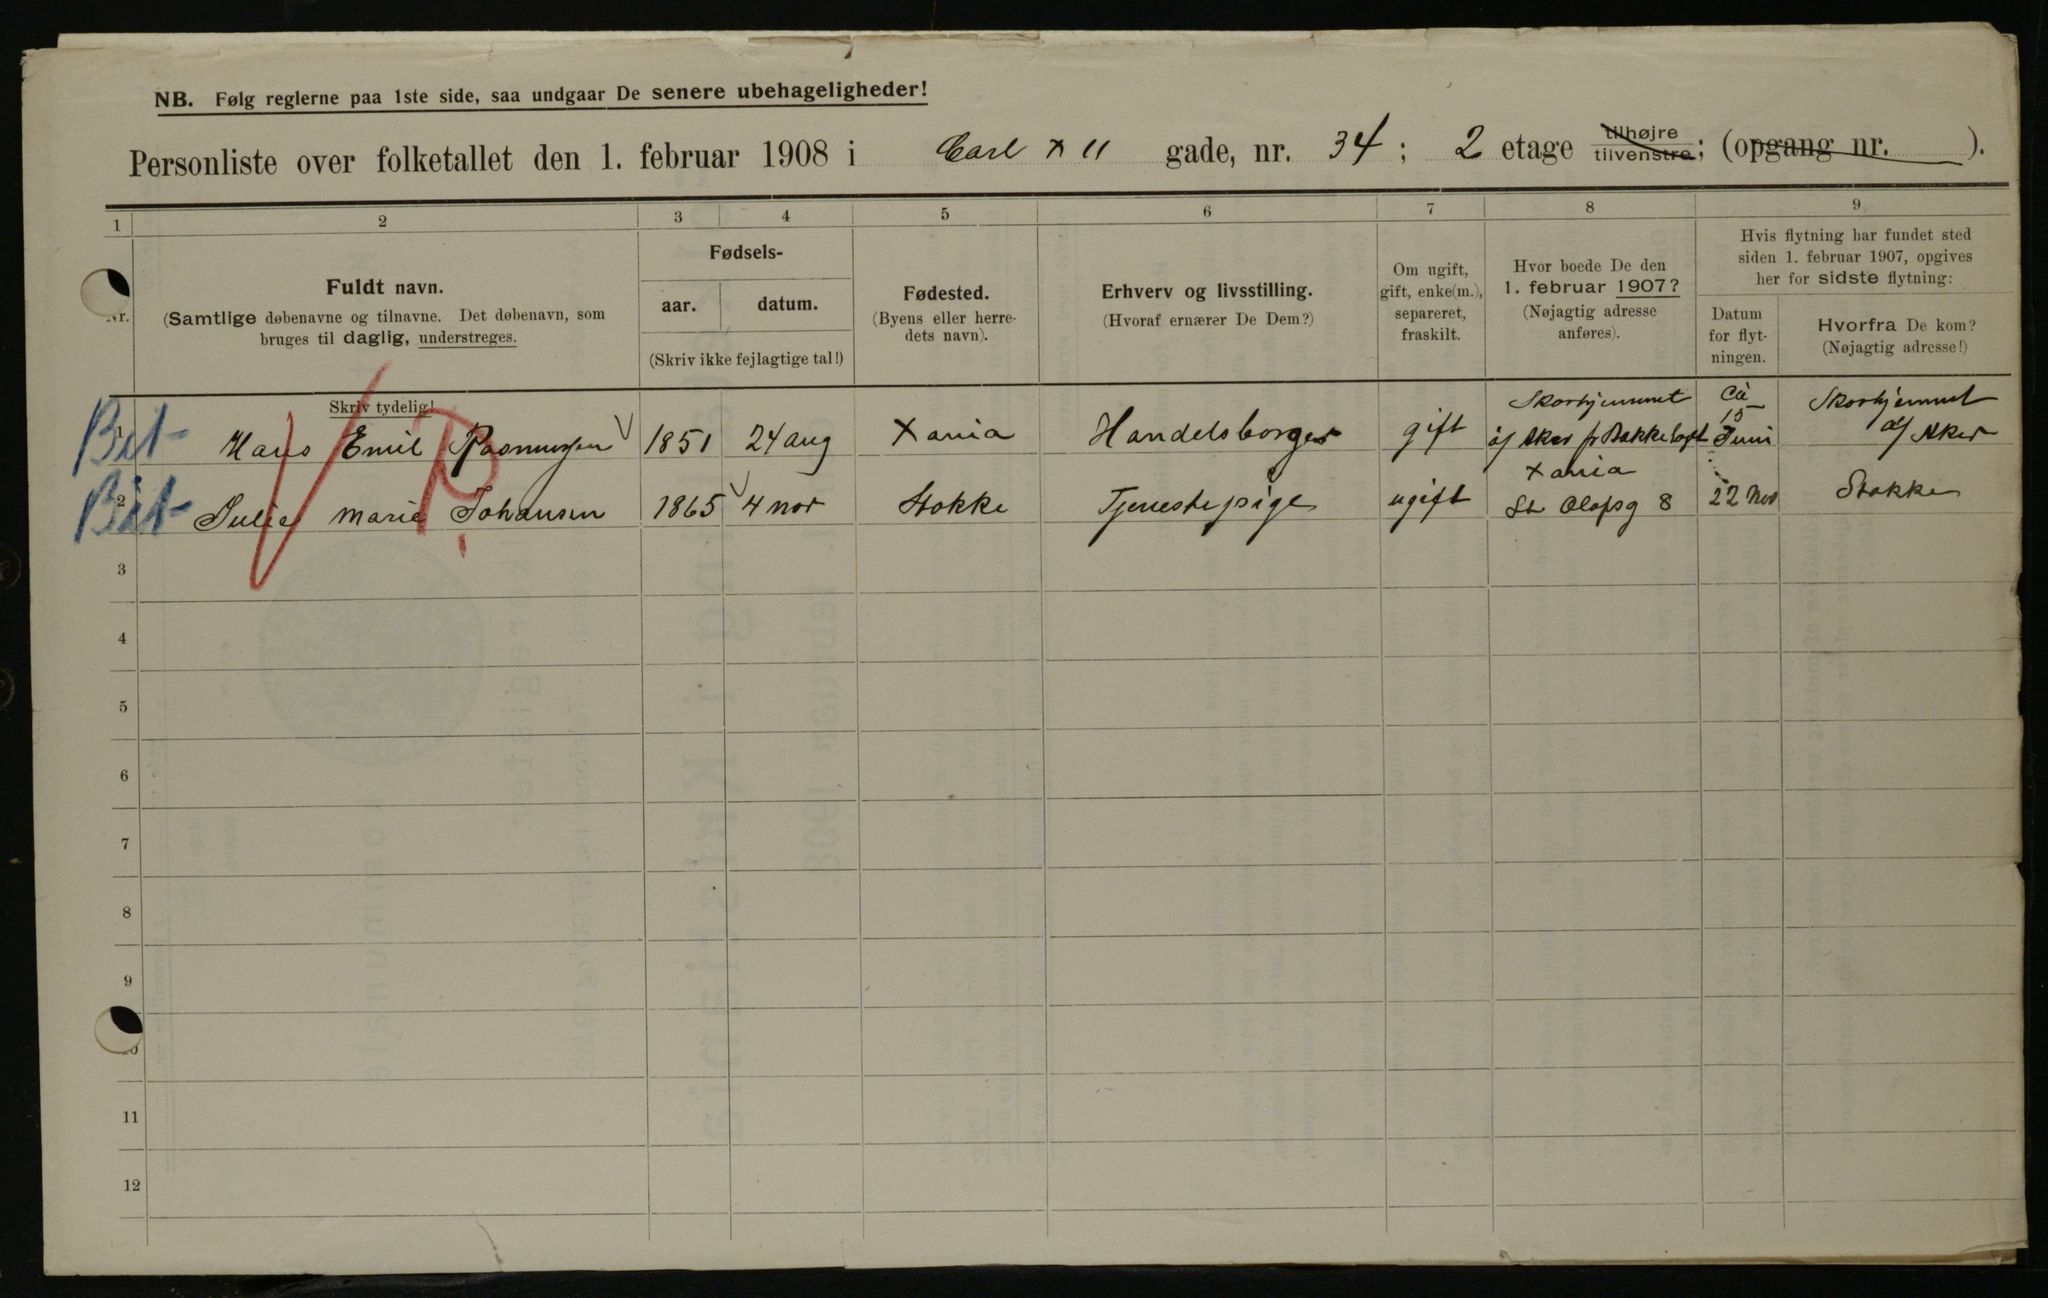 NB. Følg reglerne paa 1ste side, saa undgaar De senere ubehageligheder!
Personliste over folketallet den 1. februar 1908 i Carl XII gade, nr. 34; 2 etage tilhøjre tilvenstre; (opgang nr. ).
1 2 3 4 5 6 7 8 9
Nr.
Fuldt navn.
(Samtlige døbenavne og tilnavne. Det døbenavn, som
bruges til daglig, understreges.
Skriv tydelig!
Fødsels-
aar. datum.
(Skriv ikke fejlagtige tal!)
Fødested.
(Byens eller herre-
dets navn).
Erhverv og livsstilling.
(Hvoraf ernærer De Dem?)
Om ugift,
gift, enke(m.),
separeret,
fraskilt.
Hvor boede De den
1. februar 1907?
(Nøjagtig adresse
anføres).
Hvis flytning har fundet sted
siden 1. februar 1907, opgives
her for sidste flytning:
Datum
for flyt-
ningen.
Hvorfra De kom?
(Nøjagtig adresse!)
Bet 1 Hans Emil Rasmussen 1851 24 aug Xania Handelsborger gift
af Aker pr Bakkeløft
Ca 15 Juni
af Aker
Bet 2 Julie Marie Johansen 1865 4 nov Stokke Tjenestepige ugift
Xania
St Olafsg 8
22 Nov Stokke
V P.
3
4
5
6
7
8
9
10
11
12